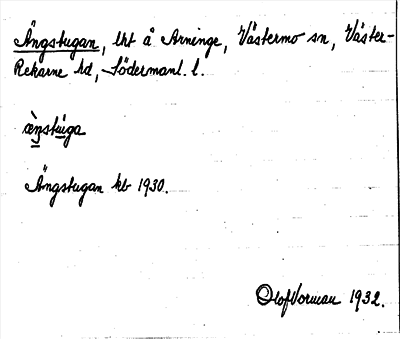 Ängstugan, lht å Arninge, Västermo sn, Väster-
Rekarne hd, Södermanl. l.
æ̀ŋstúga
Ängstugan kb 1930.
Olof Vorman 1932.